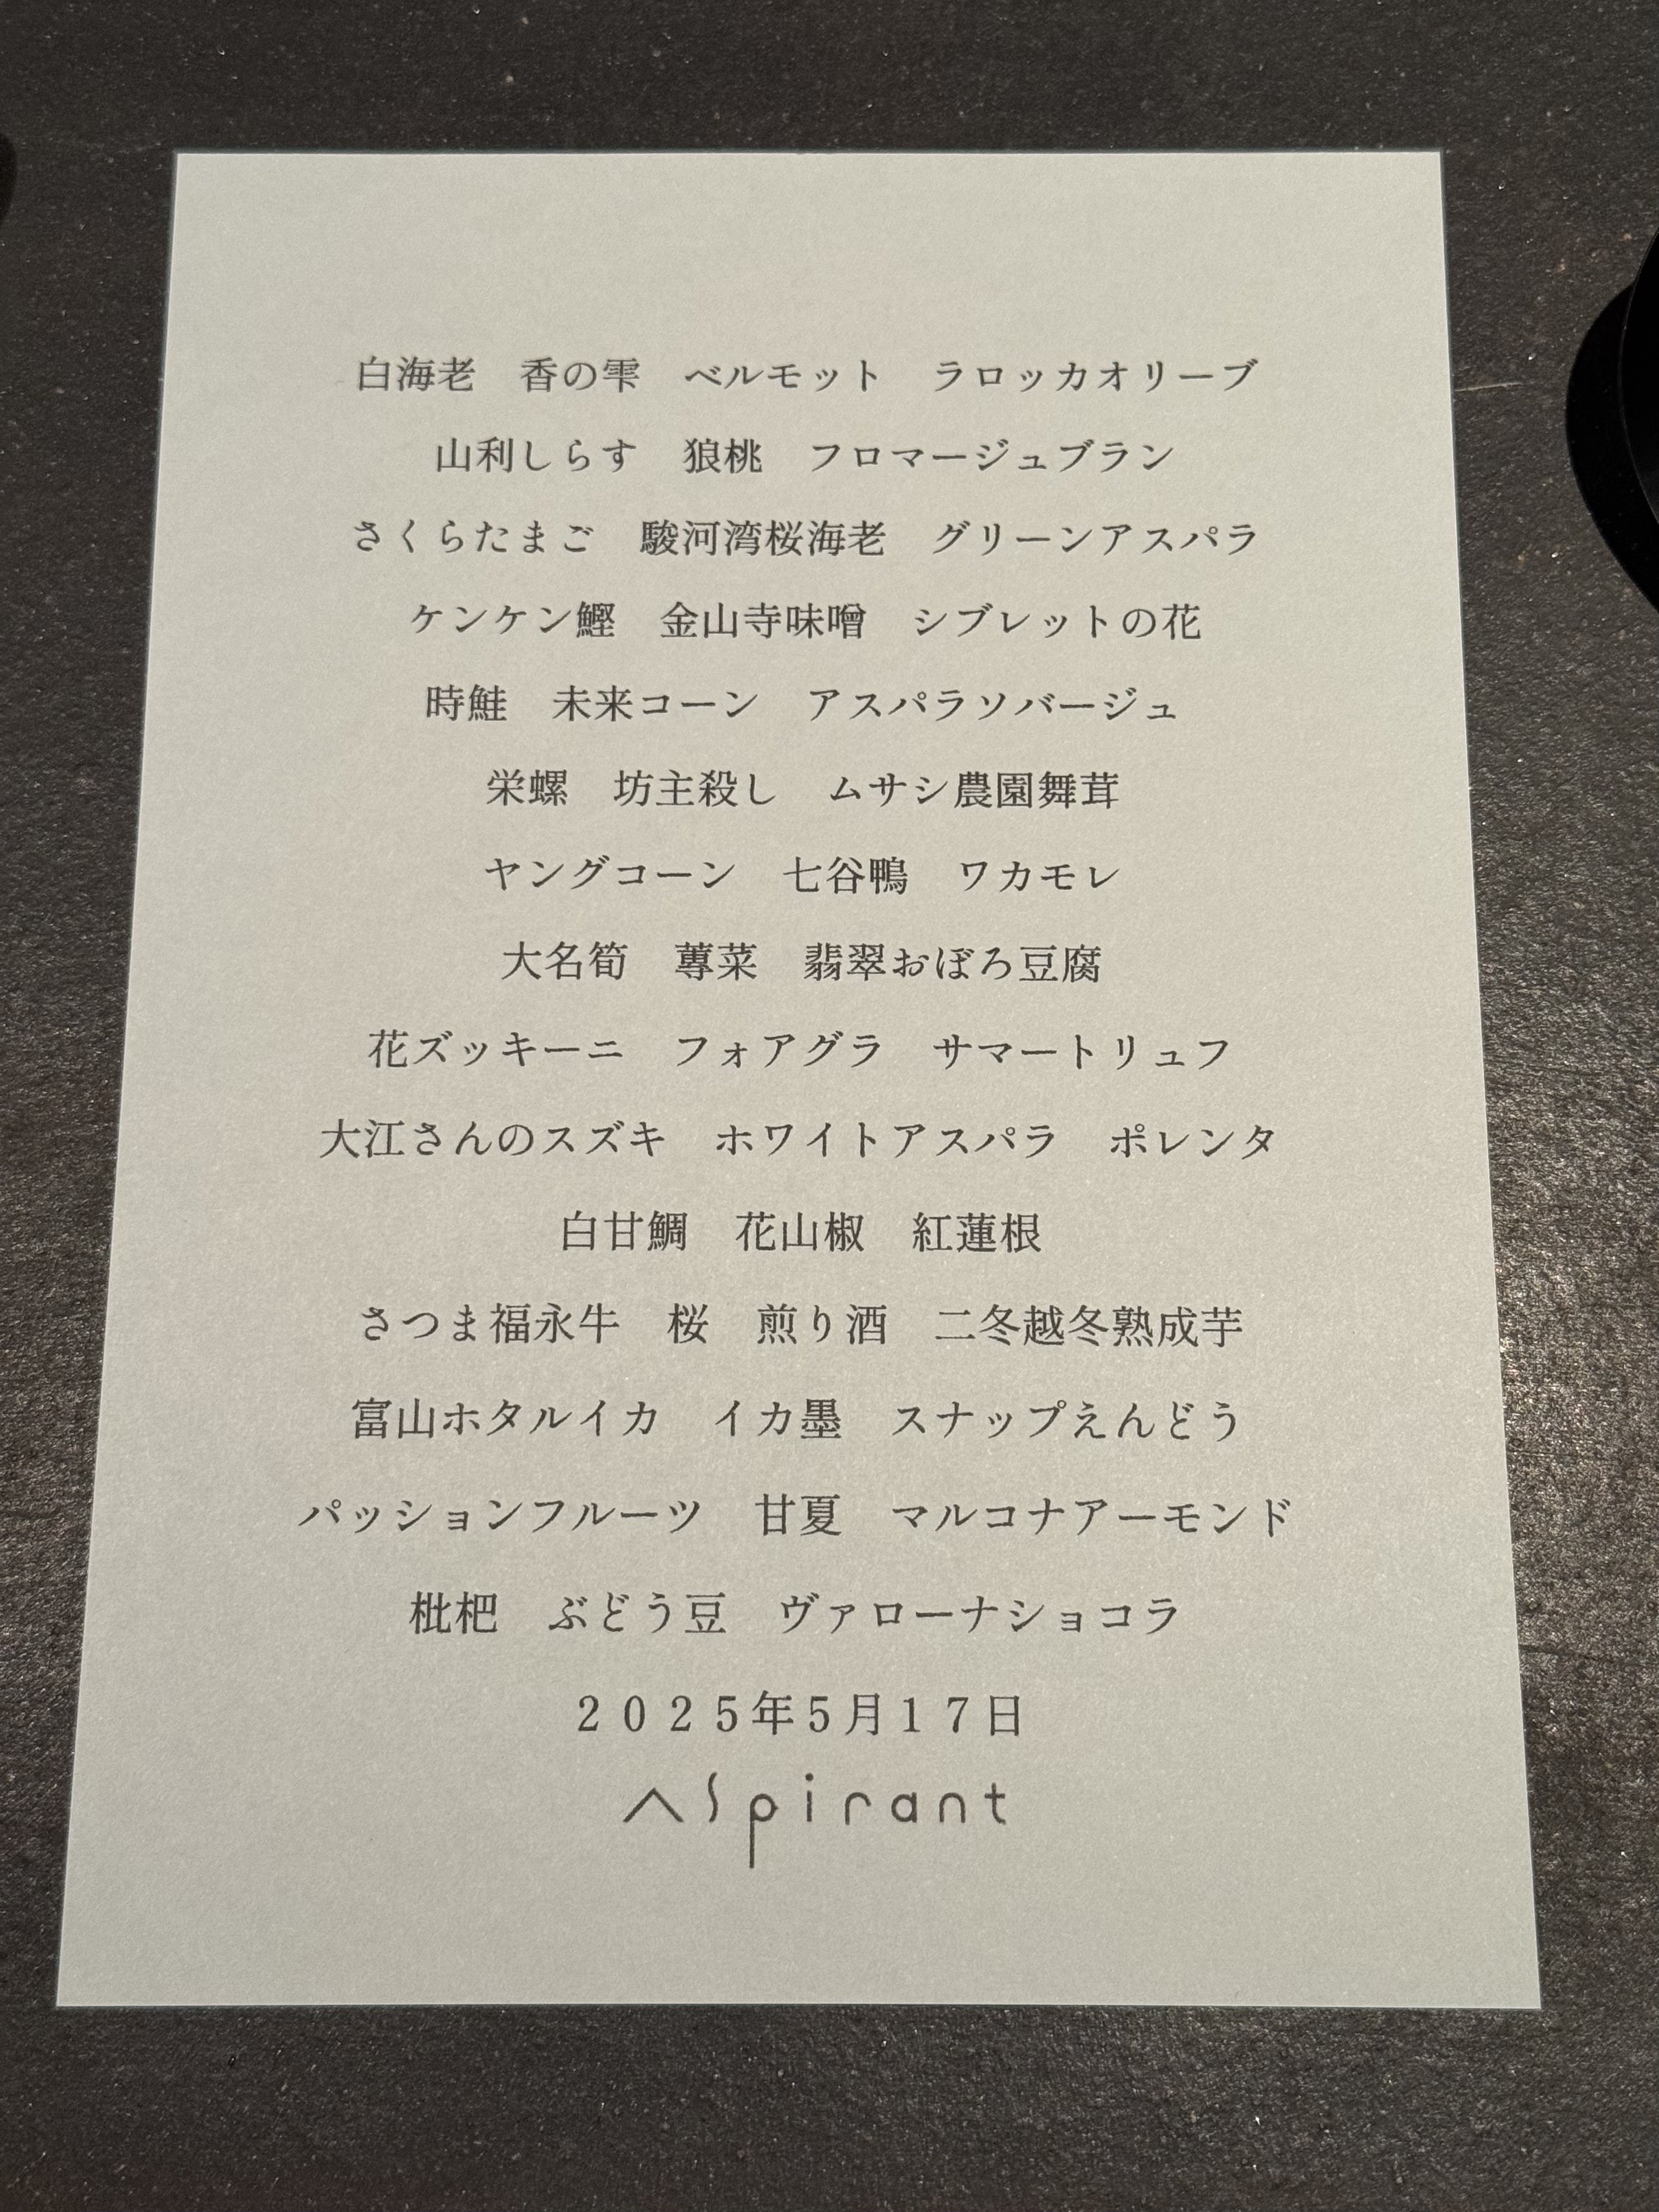 白海老　香の雫　ベルモット　ラロッカオリーブ
山利しらす　狼桃　フロマージュブラン
さくらたまご　駿河湾桜海老　グリーンアスパラ
ケンケン鰹　金山寺味噌　シブレットの花
時鮭　未来コーン　アスパラソバージュ
栄螺　坊主殺し　ムサシ農園舞茸
ヤングコーン　七谷鴨　ワカモレ
大名筍　蓴菜　翡翠おぼろ豆腐
花ズッキーニ　フォアグラ　サマートリュフ
大江さんのスズキ　ホワイトアスパラ　ポレンタ
白甘鯛　花山椒　紅蓮根
さつま福永牛　桜　煎り酒　二冬越冬熟成芋
富山ホタルイカ　イカ墨　スナップえんどう
パッションフルーツ　甘夏　マルコナアーモンド
枇杷　ぶどう豆　ヴァローナショコラ
２０２５年５月１７日
Aspirant